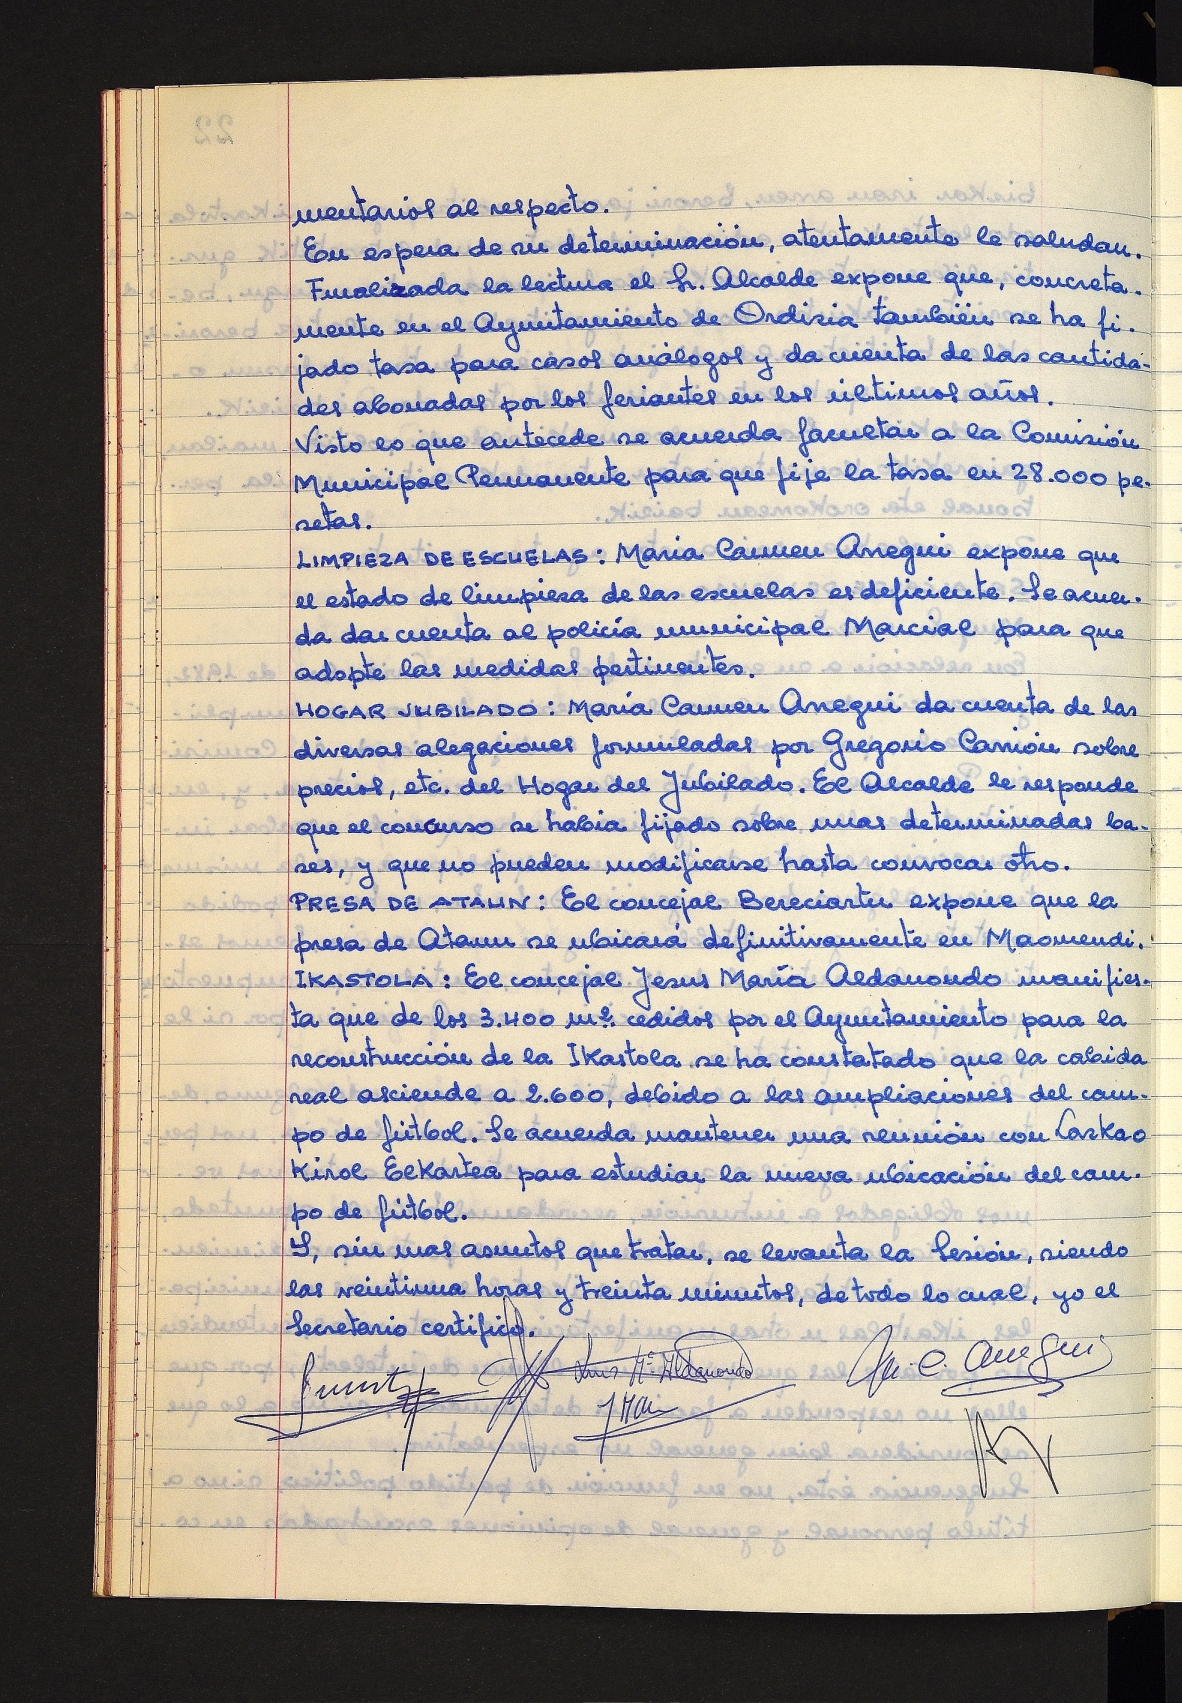 mentarios al respecto.
En espera de su determinación, atentamente le saludan.
Finalizada la lectura el Sr. Alcalde expone que, concreta-
mente en el Ayuntamiento de Ordizia también se ha fi-
jado tasa para casos análogos y da cuenta de las cantida-
des abonadas por los feriantes en los últimos años.
Visto lo que antecede se acuerda facultar a la Comisión
Municipal Permanente para que fije la tasa en 28.000 pe-
setas.
LIMPIEZA DE ESCUELAS: Maria Carmen Arregui expone que
el estado de limpieza de las escuelas es deficiente. Se acuer-
da dar cuenta al policía municipal Marcial para que
adopte las medidas pertinentes.
HOGAR JUBILADO: María Carmen Arregui da cuenta de las
diversas alegaciones formuladas por Gregorio Carrión sobre
precios, etc. del Hogar del Jubilado. El Alcalde le responde
que el concurso se había fijado sobre unas determinadas ba-
ses, y que no pueden modificarse hasta convocar otro.
PRESA DE ATAUN: El concejal Bereciartu expone que la
presa de Ataun se ubicará definitivamente en Maomendi.
IKASTOLA: El concejal Jesus María Aldanondo manifies-
ta que de los 3.400 m². cedidos por el Ayuntamiento para la
reconstrucción de la Ikastola se ha constatado que la cabida
real asciende a 2.600, debido a las ampliaciones del cam-
po de fútbol. Se acuerda mantener una reunión con Lazkao
Kirol Elkartea para estudiar la nueva ubicación del cam-
po de fútbol.
Y, sin mas asuntos que tratar, se levanta la Sesión, siendo
las veintiuna horas y treinta minutos, de todo lo cual, yo el
Secretario certifico.
Mª Aldanondo
C. Arregui
22